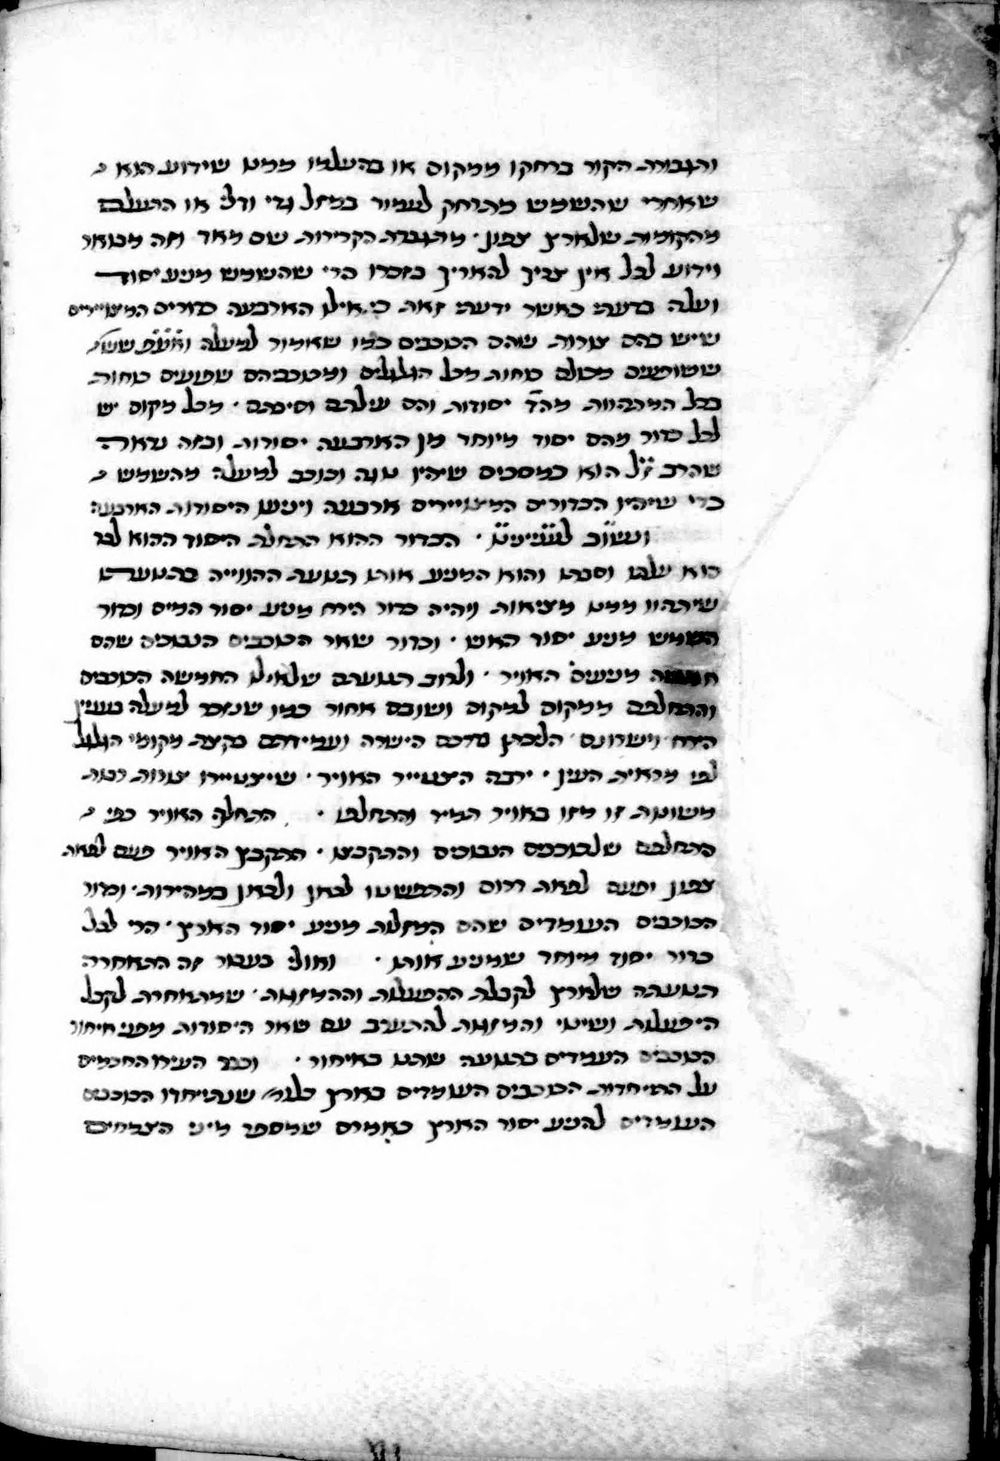 והגבורת הקור ברחקו ממקום או בהעלמו ממנו שידוע הוא
שאחרי שהשמש מתרחק לעמוד במזל גדי ודלי או התעלם
מהקומות שלארץ צפון · מתגברת הקרירות שם מאד וזה מבואר
וידוע לכל אין צריך להאריך בזכרו הרי שהשמש מניע יסוד
ועלה בדעתי כאשר ידעתי זאת כי אילו הארבעה כדורים המצויירים
שיש בהם צורות שהם הכוכבים כמו שאמור למעלה
ששופעים מכולם כוחות מכל הגלגלים ומכוכביהם שופעים כוחות
בכל המתהוות מהד' יסודות והם עילתם וסיבתם · מכל מקום יש
לכל כדור מהם יסוד מיוחד מן הארבעה יסודות ובזה נראה
שהרב ז"ל הוא במסכים שיהיו נוגה וכוכב למעלה מהשמש
כדי שיהיו הכדורים המצויירים ארבעה ויניעו היסודות הארבעה
ונשוב לעניננו · הכדור ההוא התחלת היסוד ההוא לבד
הוא עלתו וסבתו והוא המניע אותו תנועת ההוויה בתנועתו
שיתהוו ממנו מציאות ויהיה כדור הירח מניע יסוד המים וכדור
השמש מניע יסוד האש · וכדור שאר הכוכבים הנבוכים שהם
חמשה מניעים האויר · ולרוב תנועתם שלאילו החמשה הכוכבים
והתחלפם ממקום למקום ושובם אחור כמו שנזכר למעלה בענין
הירח וישרונם הליכתן בדרכם הישרה ועמידתם בקצת מקומי הגלגל
לפי מראית העין · ירבה הצטייר האויר · שיצטיירו צורות רבות
משונות זו מזו באויר המיר והתחלפו · התחלף האויר כפי
התחלפם שלכוכבים הנבוכים והתקבצו · התקבץ האויר פעם לפאת
צפון ופעם לפאת דרום והתפשטו לכאן ולכאן במהירות · וכדור
הכוכבים העומדים שהם המזלות מניע יסוד הארץ · הרי לכל
כדור יסוד מיוחד שמניע אותו · ואולי בעבור זה התאחרה
תנועתה שלארץ לקבלת ההפעלות וההמזגות · שמתאחרת לקבל
היפעלות ושינוי והמזגות להתערב עם שאר היסודות מפני איחור
הכוכבים העומדים בתנועה שהיא באיחור · וכבר העירו החכמים
על התיחדות הכוכבים העומדים בארץ כלומר שנתייחדו הכוכבים
העומדים להניע יסוד הארץ באמרם שמספר מיני הצמחים